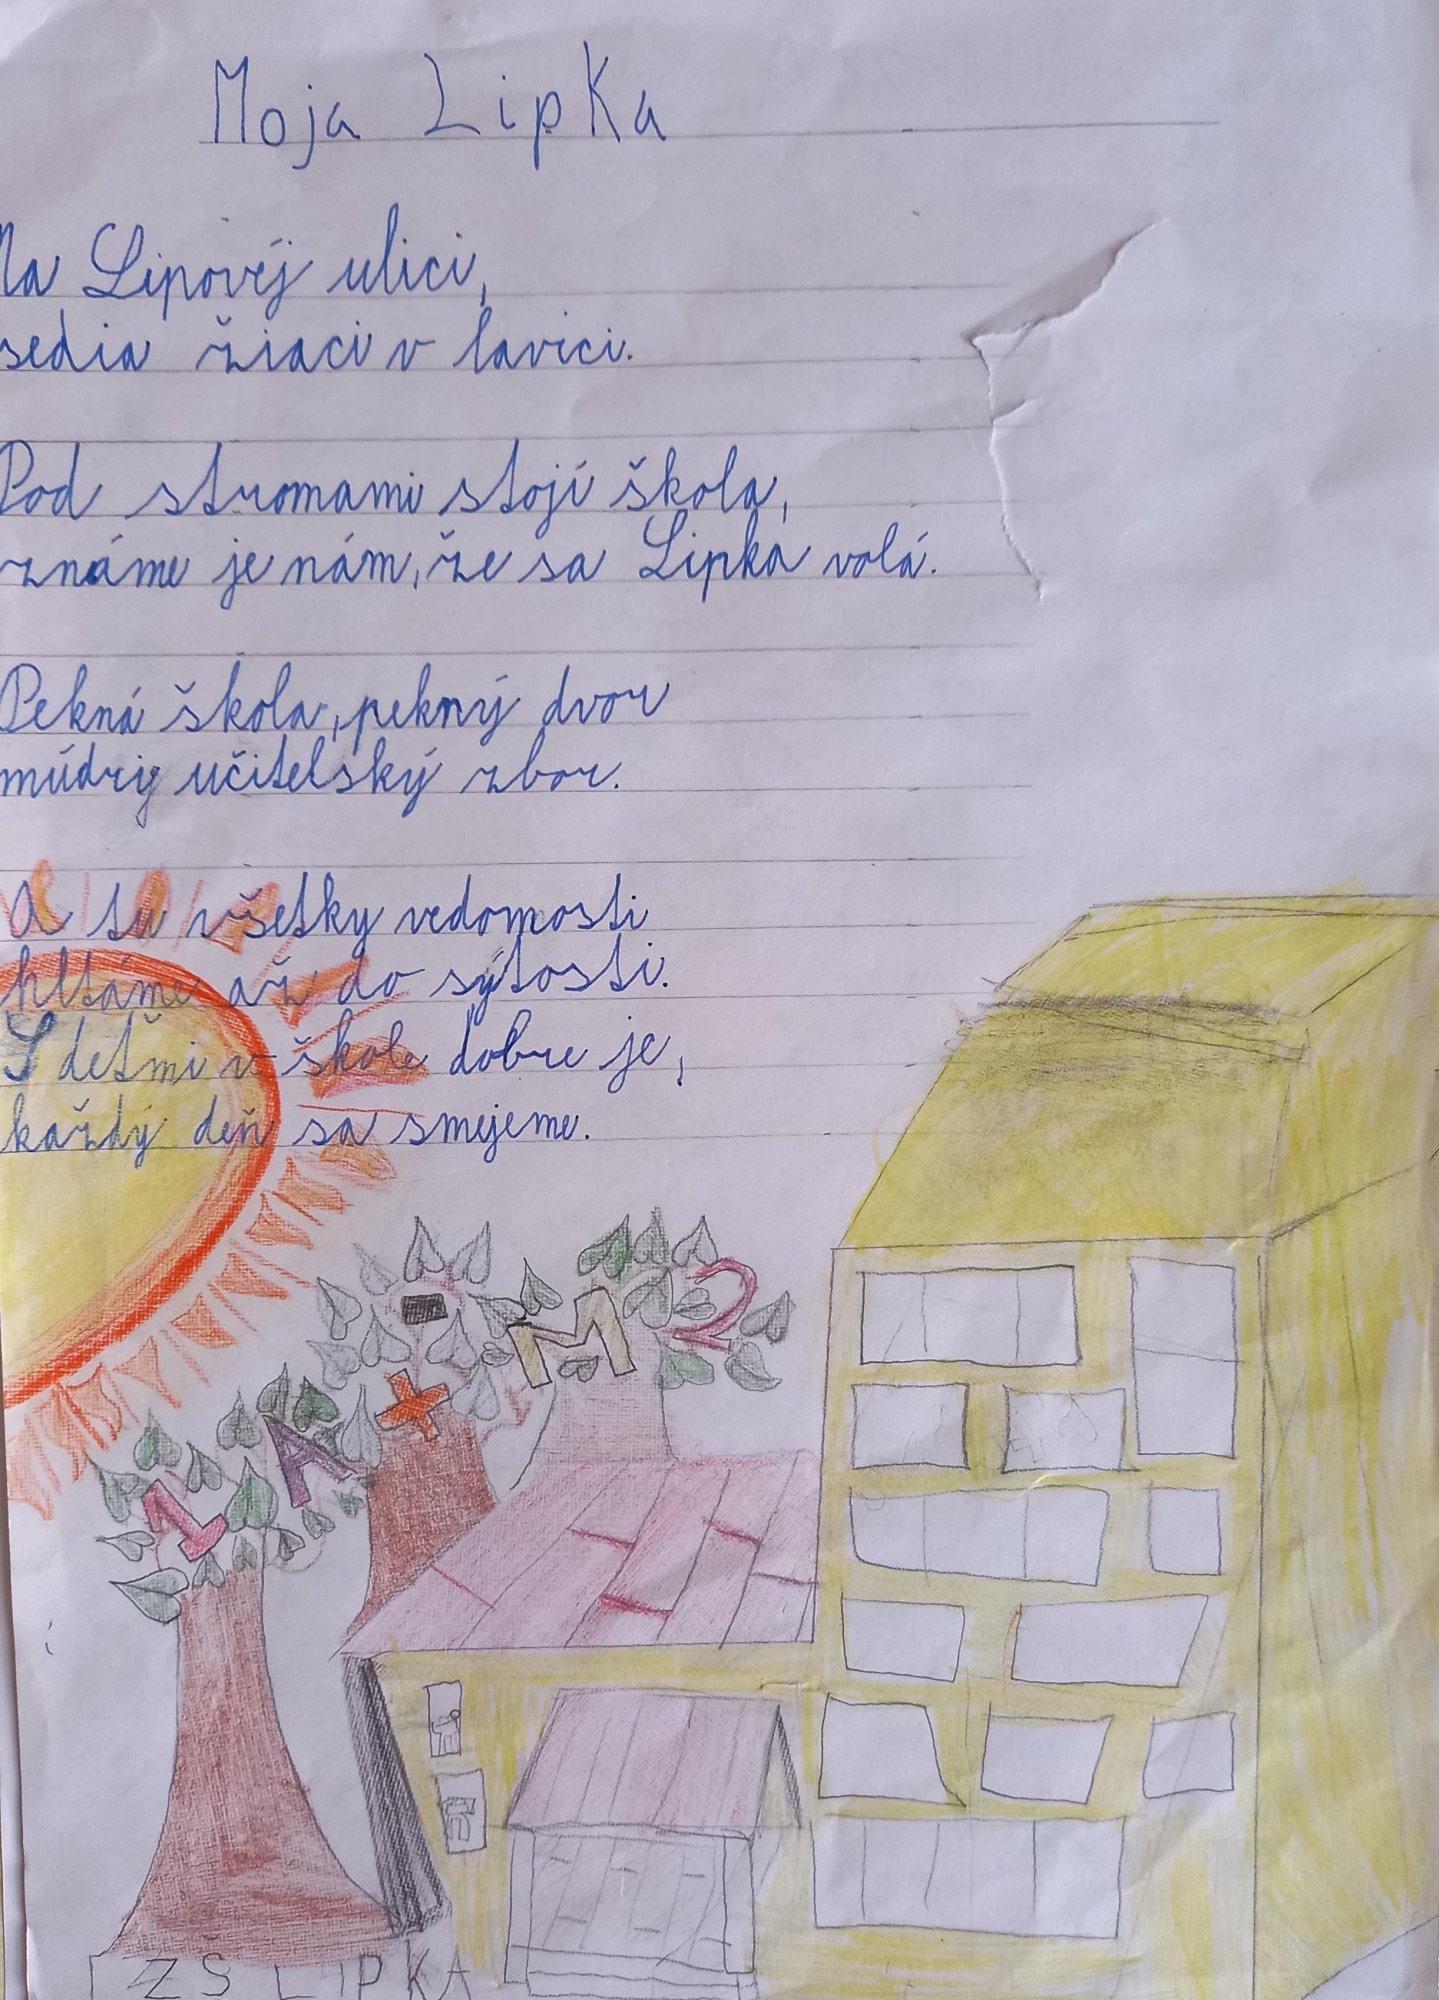 Moja Lipka
Na Lipovéj ulici,
sedia žiaci v lavici.
Pod stromami stojí škola,
známe je nám, že sa Lipka volá.
Pekná škola, pekný dvor
múdrig učitelský zbor.
A tu všetky vedomosti
hltáme až do sýtosti.
S deťmi v škole dobre je,
každý deň sa smejeme.
- M 2
1 A +
ZŠ LIPKA